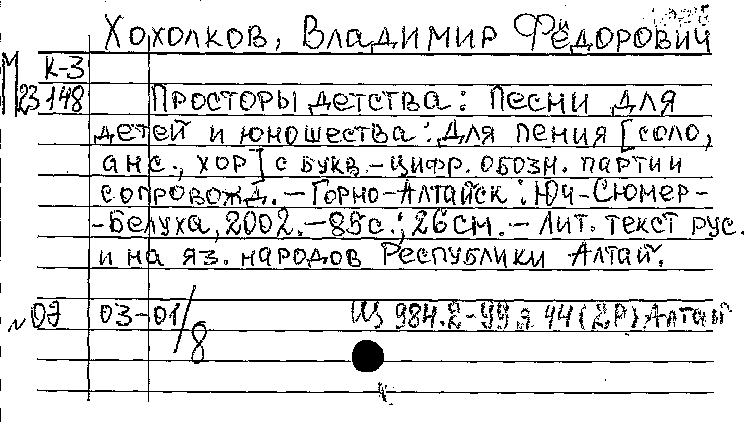 Хохолков, Владимир Фёдорович
М К-3
23 148 Просторы детства: Песни для
детей и юношества: Для пения [соло,
анс., хор] с букв.-цифр. обозн. партии
сопровожд. - Горно-Алтайск: Юч-Сюмер-
-Белуха, 2002. - 85 с.; 26 см. - Лит. текст рус.
и на яз. народов Республики Алтай.
03-01/8 Щ 984.2-99 я 44 (2Р) Алтай